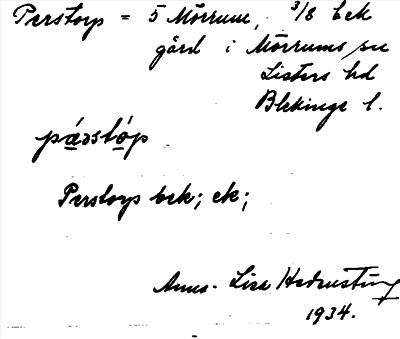 Perstorp = 5 Mörrum, 3/8 bek
gård i Mörrums sn
Listers hd
Blekinge l.
pá̱ɔstó̱p
Perstorps bek; ek;
Anna-Lisa
1934.